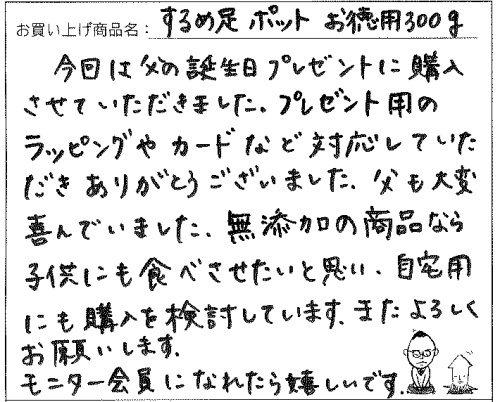 お買い上げ商品名: するめ足 ポット お徳用300g
今回は父の誕生日プレゼントに購入
させていただきました。プレゼント用の
ラッピングや カードなど対応していた
だきありがとうございました。父も大変
喜んでいました。無添加の商品なら
子供にも食べさせたいと思い、自宅用
にも購入を検討しています。またよろしく
お願いします。
モニター会員になれたら嬉しいです。